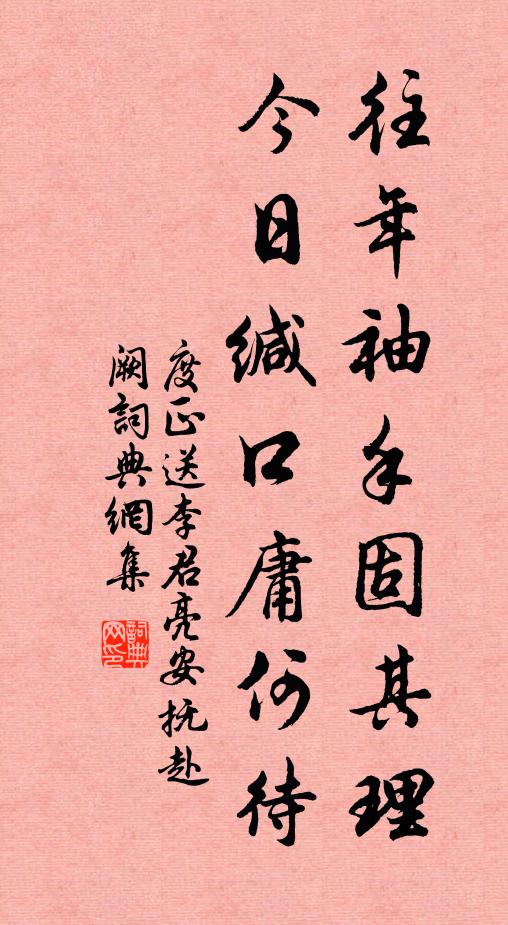 往年袖手固其理
今日緘口庸何待
度正送李君亮安抚赴
阙詞典網集
詞典网印